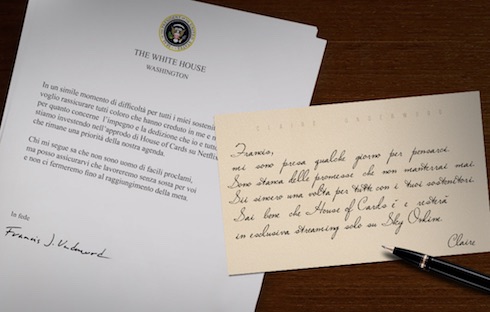 THE WHITE HOUSE
WASHINGTON
In un simile momento di difficoltà per tutti i miei sostenit
voglio rassicurare tutti coloro che hanno creduto in me e n
per quanto concerne l'impegno e la dedizione che io e tu
stiamo investendo nell'approdo di House of Cards su Netflix
che rimane una priorità della nostra agenda.
Chi mi segue sa che non sono uomo di facili proclami,
ma posso assicurarvi che lavoreremo senza sosta per voi
e non ci fermeremo fino al raggiungimento della meta.
In fede
Francis J. Underwood
CLAIRE UNDERWOOD
Francis,
mi sono presa qualche giorno per pensarci.
Sono stanca delle promesse che non manterrai mai.
Sii sincero una volta per tutte con i tuoi sostenitori.
Sai bene che House of Cards è e resterà
in esclusiva streaming solo su Sky Online.
Claire